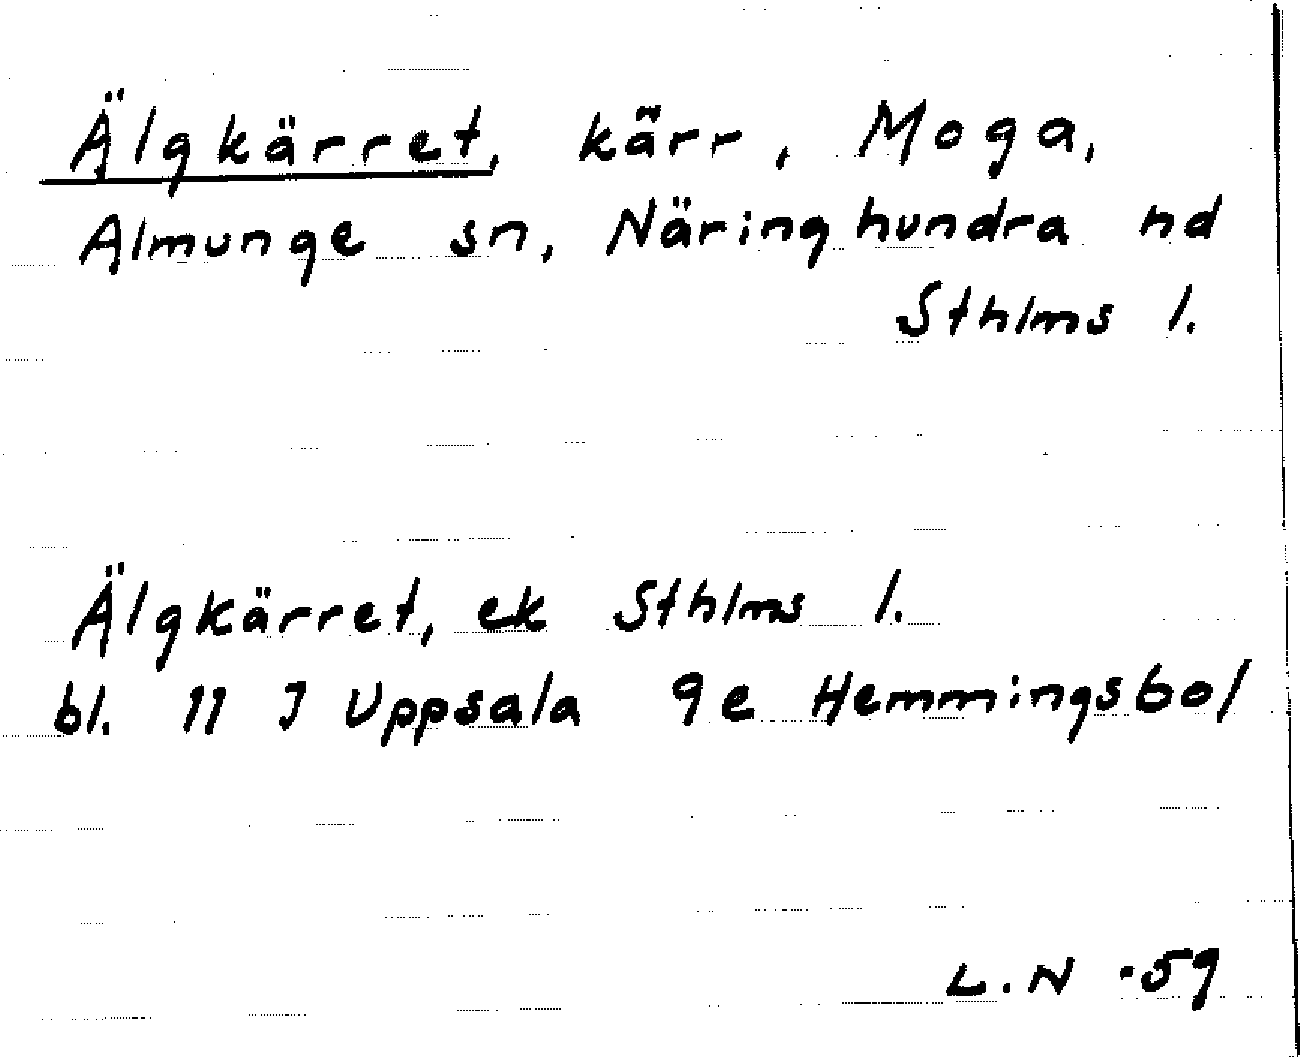 Älgkärret, kärr, Moga,
Almunge sn, Näringhundra hd
Sthlms l.
Älgkärret, ek Sthlms l.
bl. 11 J Uppsala 9e Hemmingsbol
L.N -59